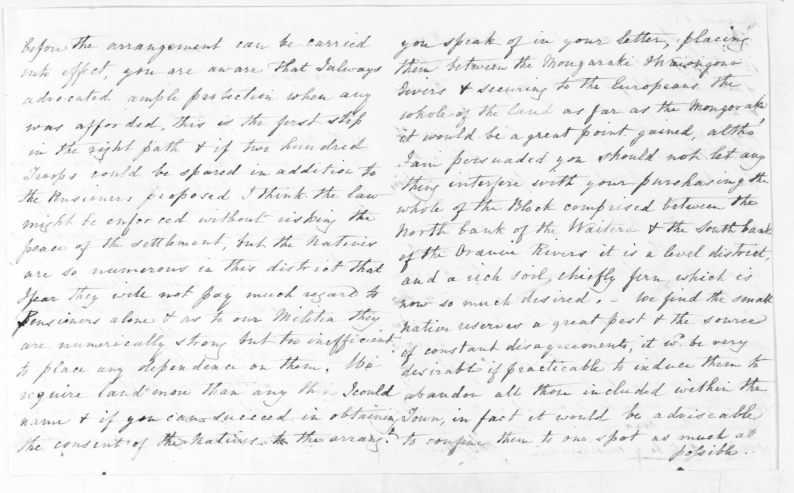 before the arrangement can be carried
into effect, you are aware that I always
advocated ample protection when any
was afforded, this is the first step
in the right path & if two hundred
Troops could be spared in addition to
the Pensioners proposed I think the law
might be enforced without risking the
peace of the settlement, but the Natives
are so numerous in this district that
I fear they will not pay much regard to
Pensioners alone & as to our Militia they
are numerically strong but too inefficient
to place any dependence on them. We
require land more than any thing I could
name & if you can succeed in obtaining
the consent of the Natives to the arrangt.
you speak of in your letter, placing
them between the Mongaraki & Waiongona
Rivers & securing to the Europeans the
whole of the land as far as the Mongoraki
it would be a great point gained, altho'
I am persuaded you should not let any
thing interfere with your purchasing the
whole of the Block comprised between the
North bank of the Waitera & the South bank
of the Rivers it is a level district,
and a rich soil, chiefly fern, which is
now so much desired. – We find the small
Native reserves a great pest & the source
of constant disagreements, it wd. be very
desirable if practicable to induce them to
abandon all those included within the
Town, in fact it would be adviseable
to confine them to one spot as much as
possible..